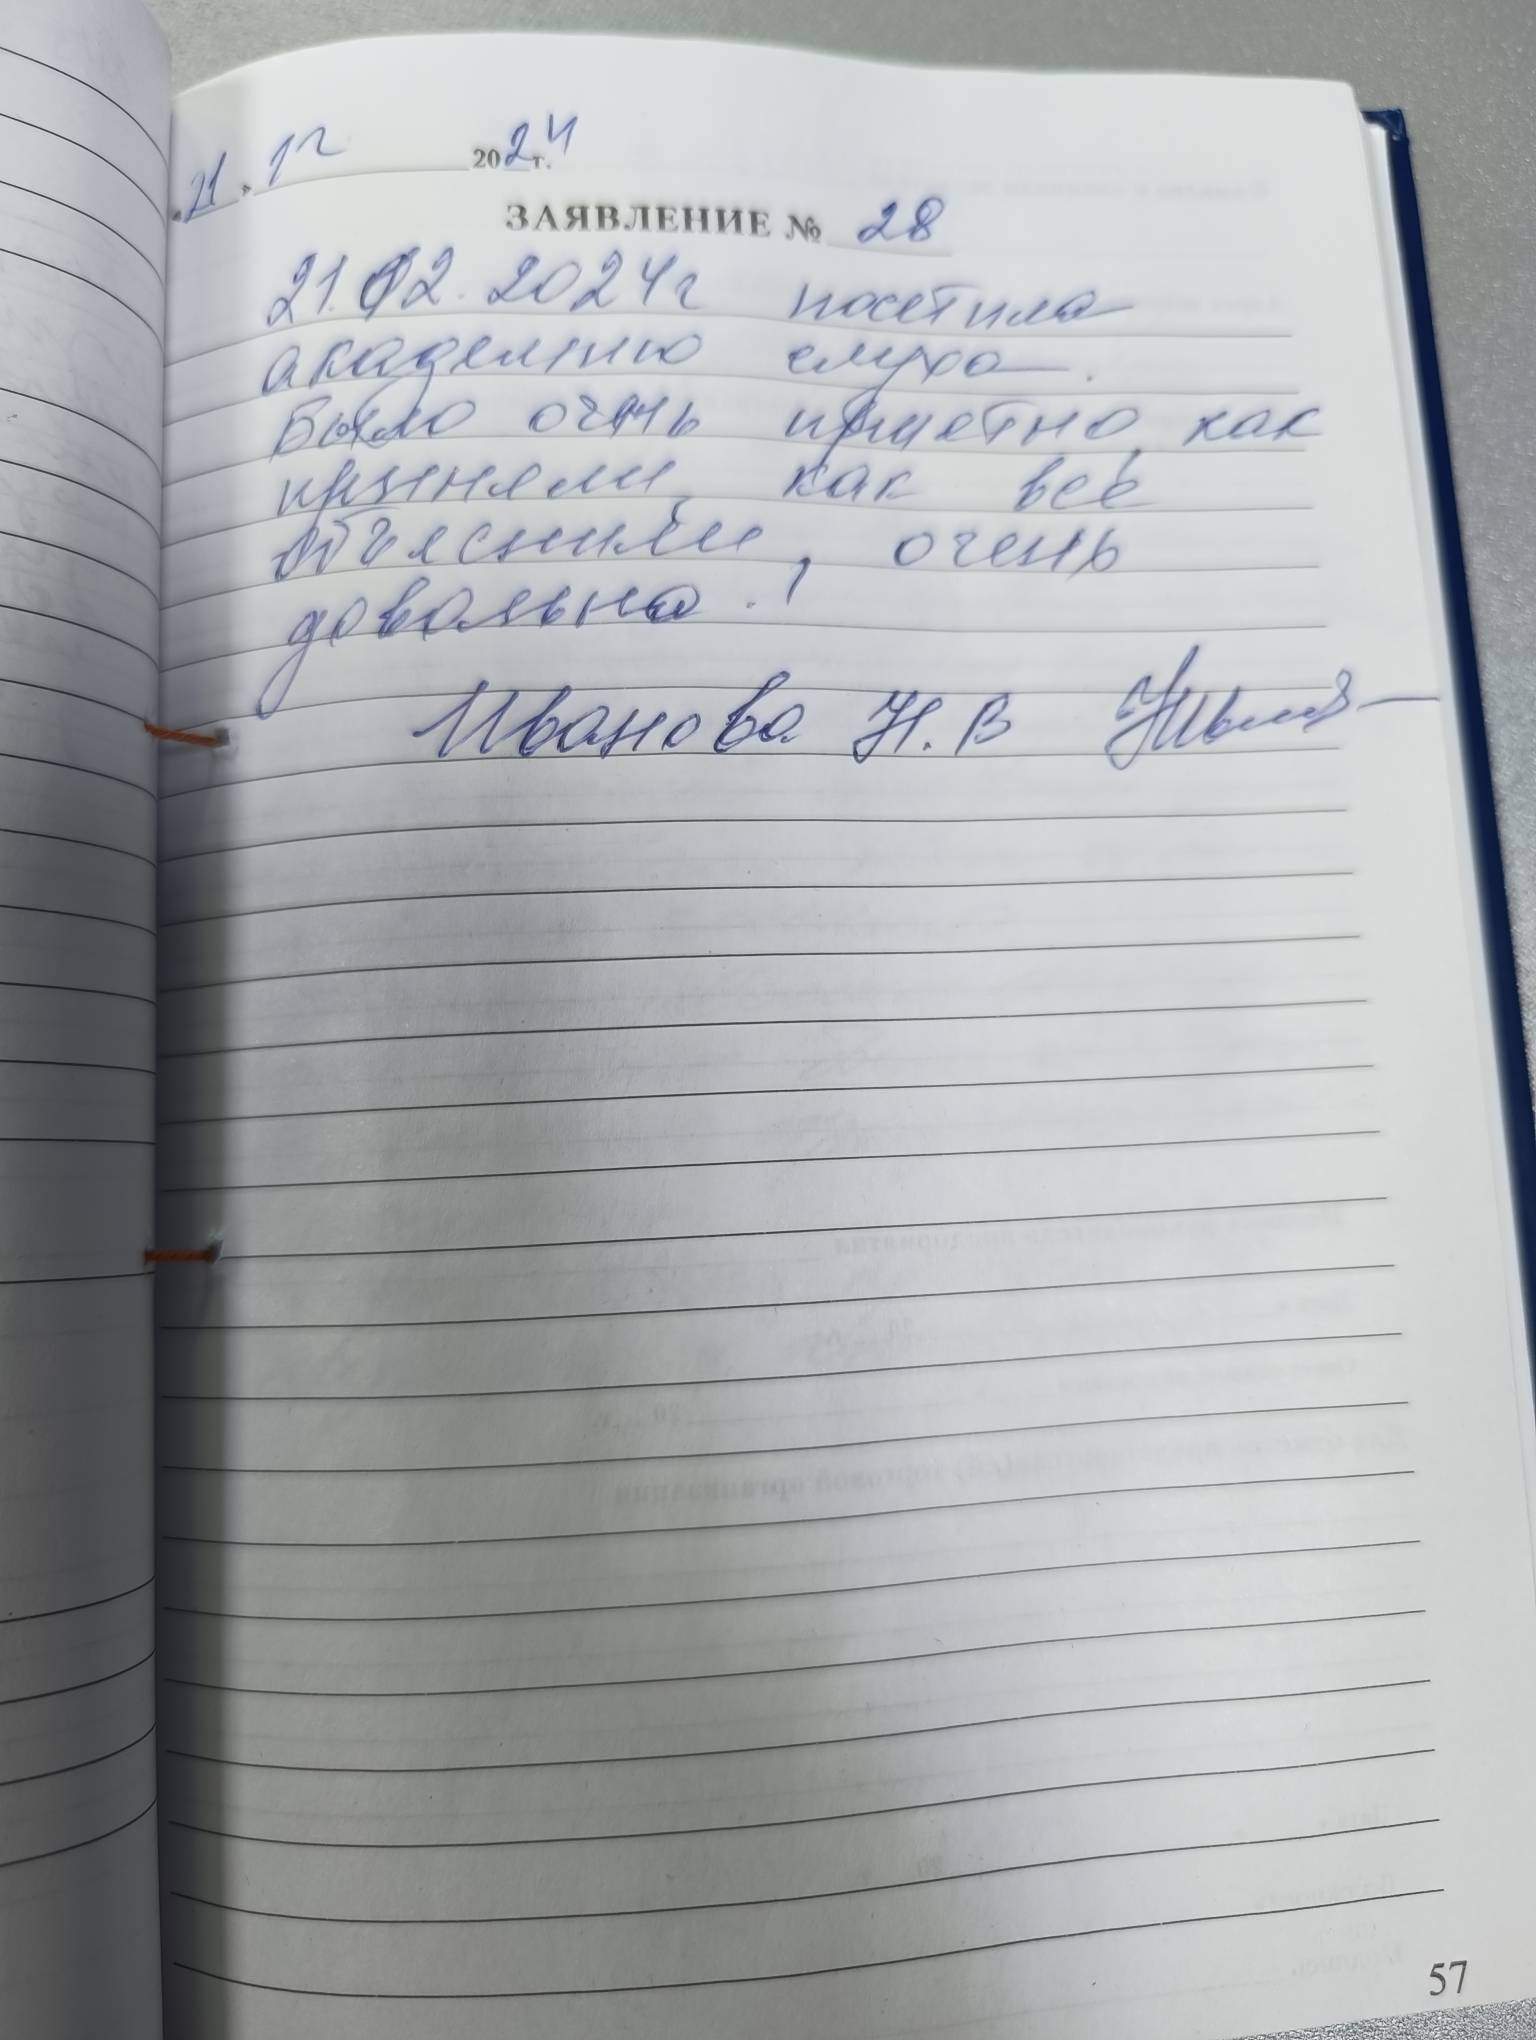 « 21 » 12 2024 г.
ЗАЯВЛЕНИЕ № 28
21.12.2024г посетила
академию слуха.
Было очень приятно, как
приняли, как всё
объяснили, очень
довольна!
Иванова Н.В
57